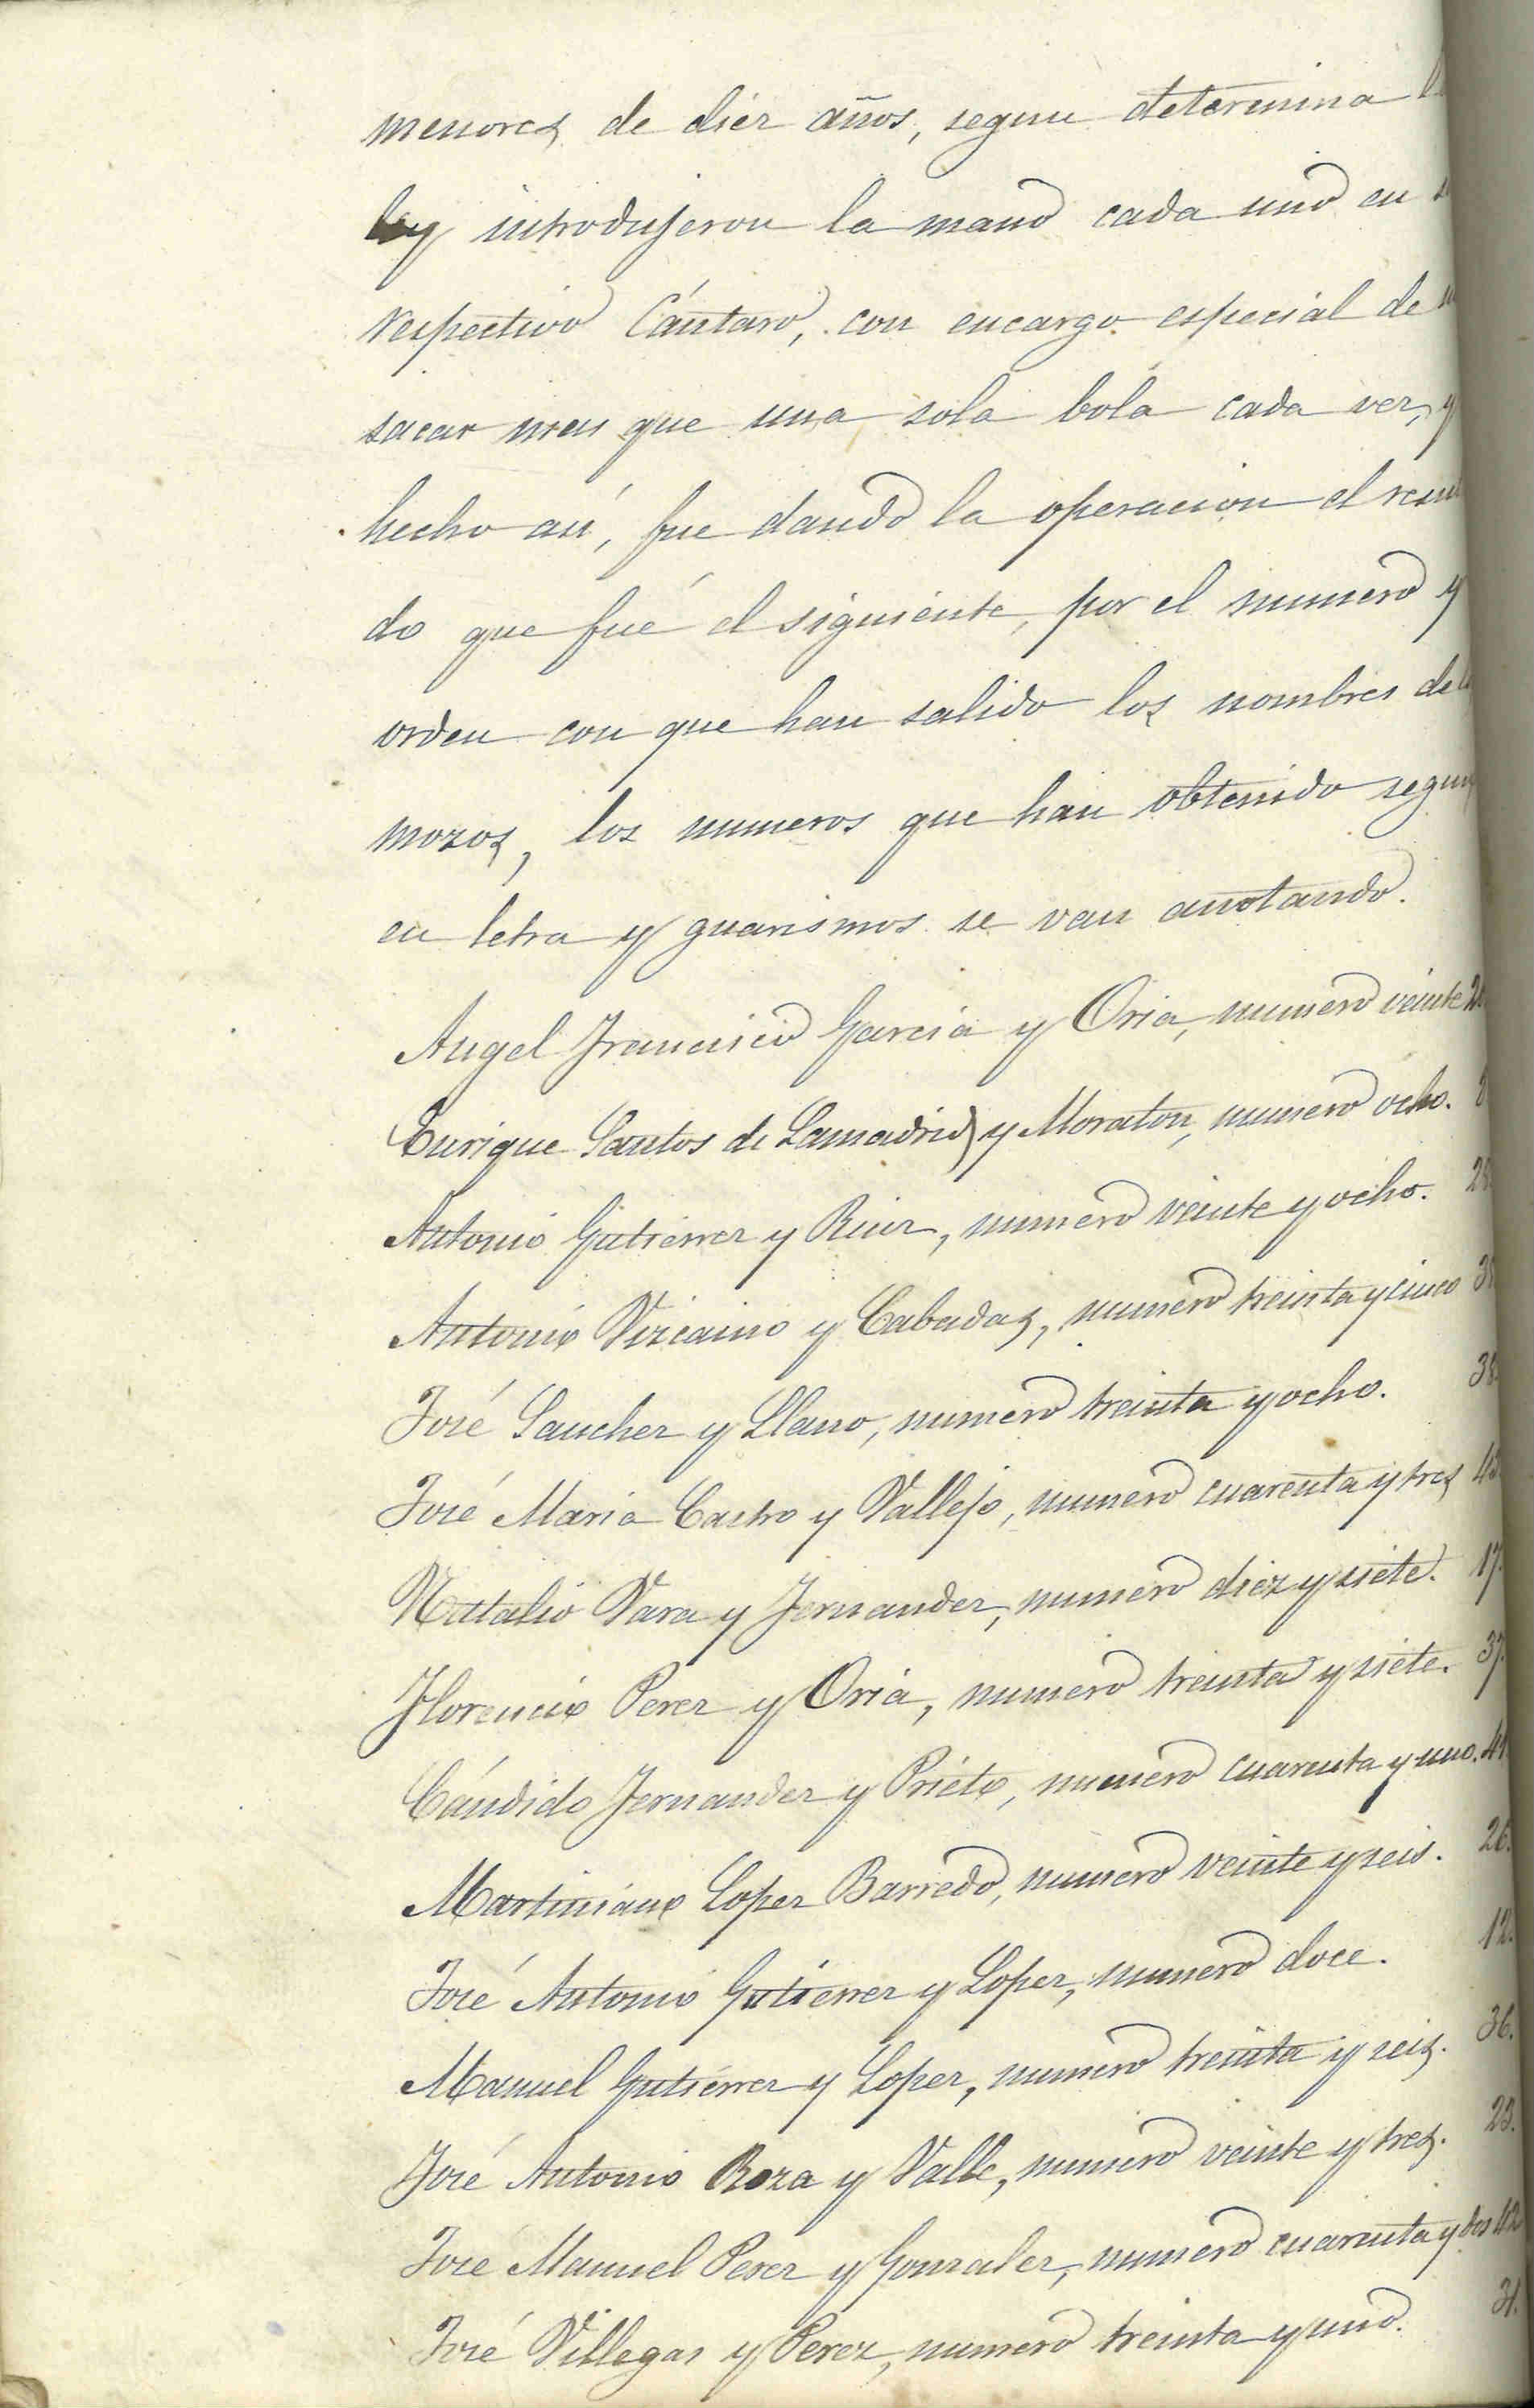 menores de diez años, segun determina l
ley introdujeron la mano cada uno en s
respectivo Cántaro, con encargo especial de
sacar mas que una sola bola cada vez, y
hecho así, fue dando la operacion el resul
do que fué el siguiente, por el numero y
orden con que han salido los nombres de l
mozos, los numeros que han obtenido segun
en letra y guarismos se van anotando.
Angel Francisco Garcia y Oria, numero veinte 20
Enrique Santos de Lamadrid y Moraton, numero ocho. 8
Antonio Gutierrez y Ruiz, numero veinte y ocho. 28.
Antonio Vizcaino y Cabadas, numero treinta y cinco 35
José Sanchez y Llano, numero treinta y ocho. 38.
José Maria Castro y Vallejo, numero cuarenta y tres 43.
Natalio Vara y Fernandez, numero diez y siete. 17.
Florencio Perez y Oria, numero treinta y siete. 37.
Cándido Fernandez y Prieto, numero cuarenta y uno. 41.
Martiniano Lopez Barredo, numero veinte y seis. 26.
José Antonio Gutierrez y Lopez, numero doce. 12.
Manuel Gutiérrez y Lopez, numero treinta y seis. 36.
José Antonio Roza y Valle, numero veinte y tres. 23.
José Manuel Perez y Gonzalez, numero cuarenta y dos 42
José Villegas y Perez, numero treinta y uno. 31.